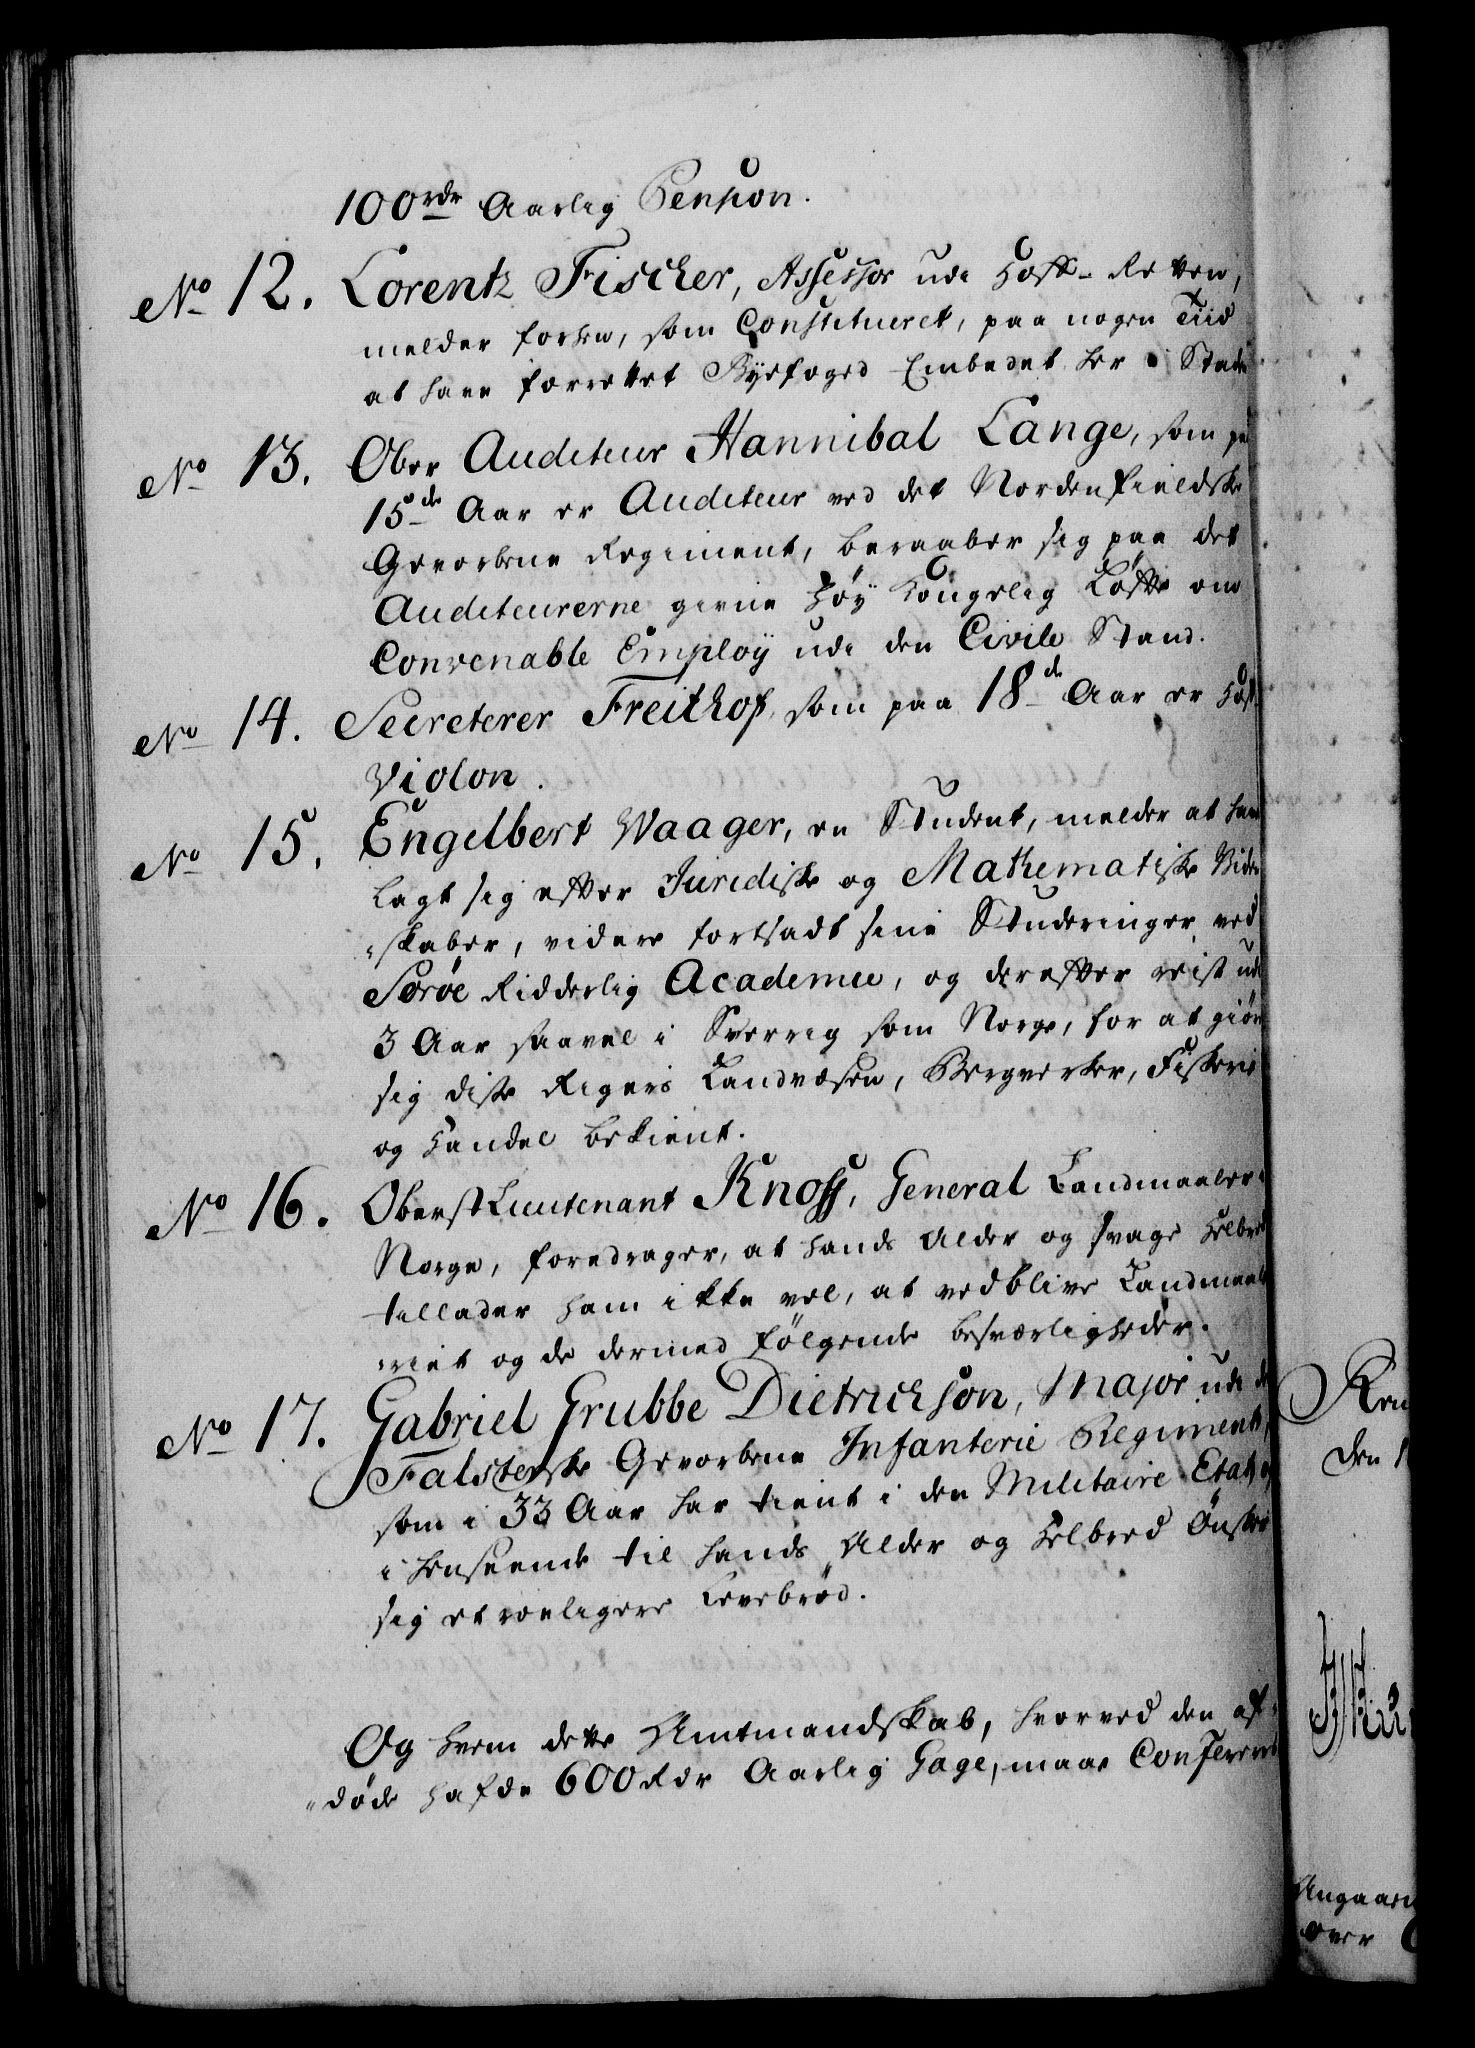 100rdr Aarlig Pension.
No 12. Lorentz Fischer, Assessor udi Hoff-Retten,
melder forhen, som Constitueret, paa nogen Tiid
at have forrettet Byefoged Embedet her i Staden
No 13. Ober Auditeur Hannibal Lange, som paa
15de Aar er Auditeur ved det Nordenfieldske
Gevorbene Regiment, beraaber sig paa det
Auditeurerne givne høy Kongelig Løfte om
Convenable Employ udi den Civile Stand.
No 14. Secreterer Freithof, som paa 18de Aar er Hof-
Violon.
No 15. Engelbert Waager, en Student, melder at have
lagt sig efter Juridiske og Mathematiske Viden
skaber, videre fortsadt sine Studeringer ved
Sorøe Ridderlig Academie, og derefter reist udi
3 Aar saavel i Sverrig som Norge, for at giøre
sig diske Rigers Landvæsen, Bergverker, Fiskerie
og Handel bekient.
No 16. Oberst Lieutenant Knoff, General Landmaaler i
Norge, foredrager, at hands Alder og svage Helbred
tillader ham ikke vel, at vedblive Landmaale
riet og de dermed følgende besværligheder.
No 17. Gabriel Grubbe Dietrichson, Major udi det
Falsterske Gevorbene Infanterie Regiment,
som i 33 Aar har tient i den Militaire Etat og
i henseende til hands Alder og Helbred Ønsker
sig et roeligere Levebrød.
Og hvem dette Amtmandskab, hvorved den af-
døde hafde 600 Rdr Aarlig Gage, maae Conferers
den
Angaaen
over